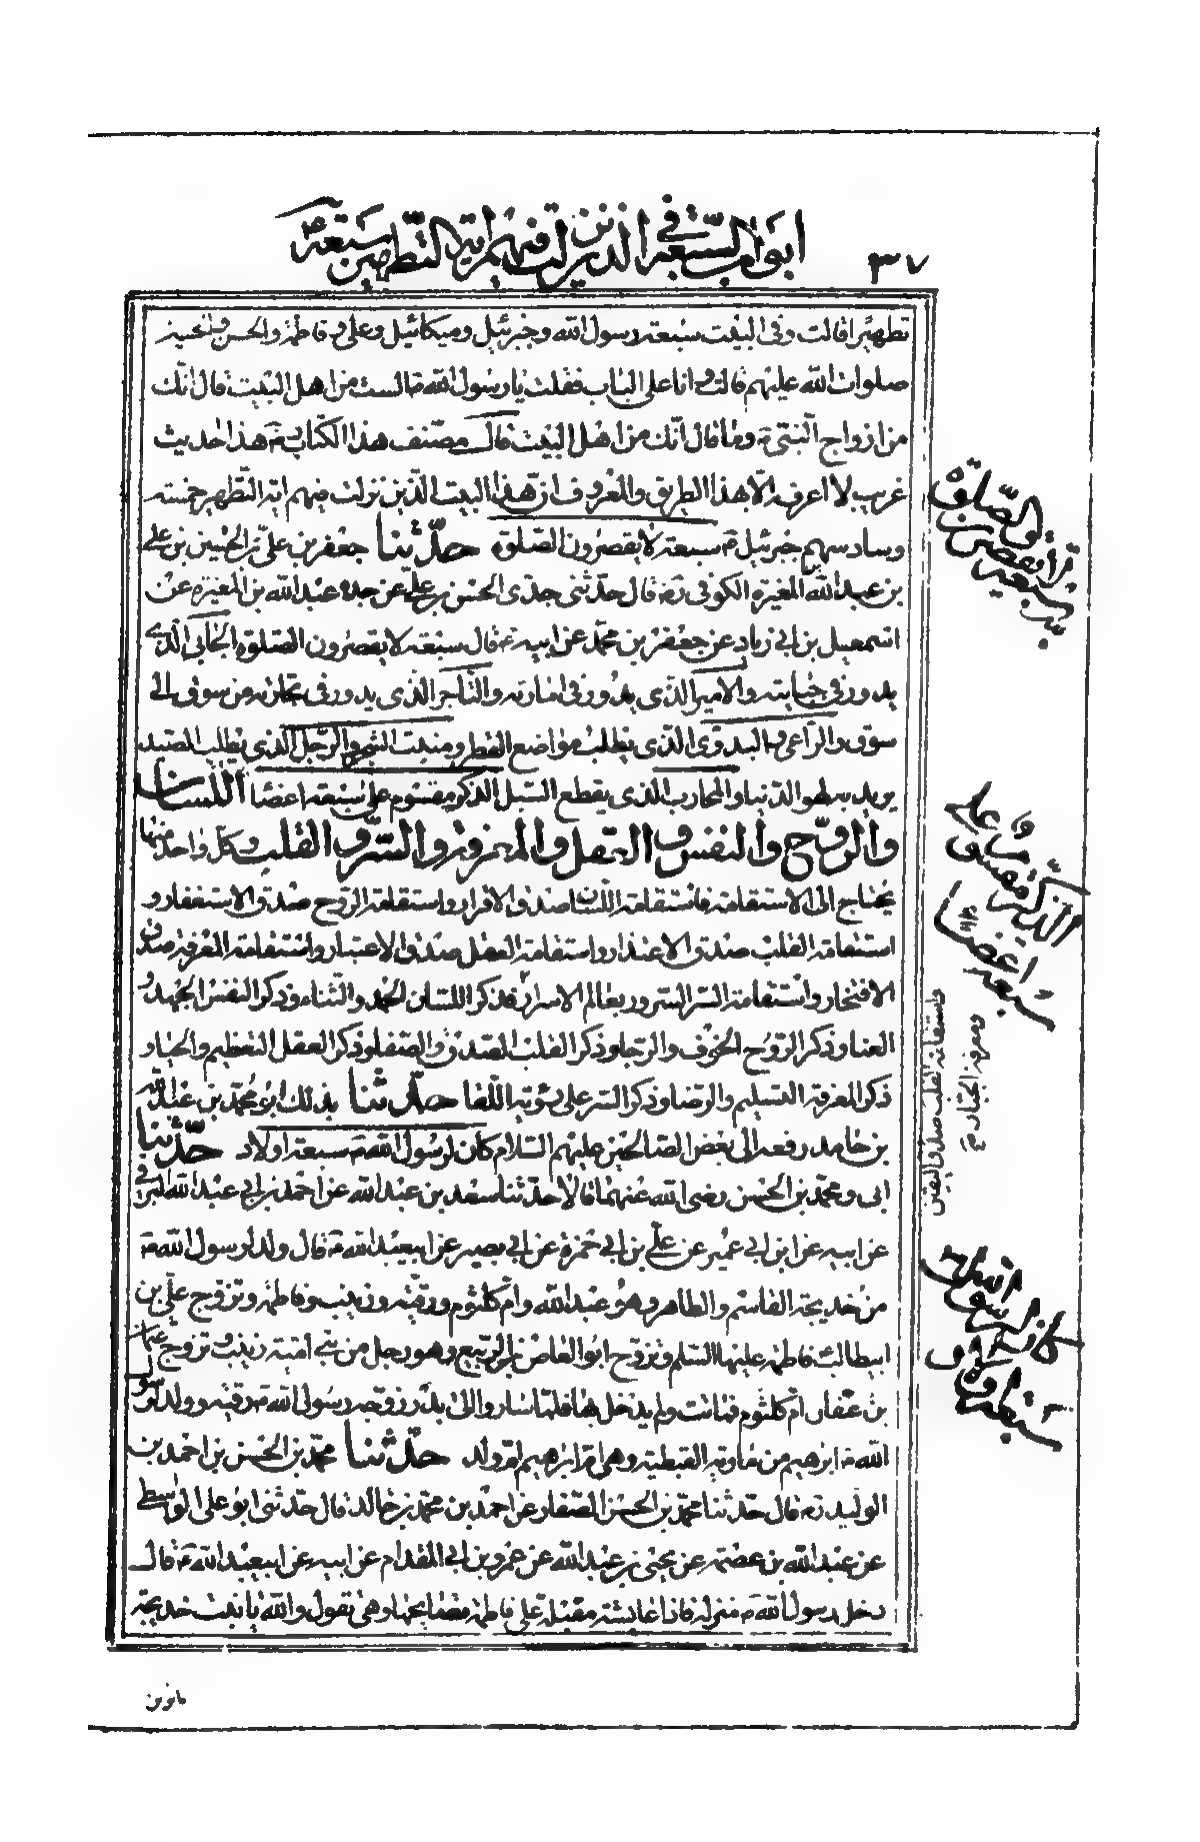 ابواب السبعة في الذين نزلت فيهم اية التطهير سبعة
٣٧
تطهيرا قالت وفى البيت سبعة رسول الله وجبرئيل وميكائيل وعلى و فاطمة والحسن والحسين
صلوات الله عليهم قالت وانا على الباب فقلت يا رسول الله ء الست من اهل البيت قال انك
من ازواج النبى ص وما قال انك من اهل البيت قال مصنف هذا الكتاب ره هذا حديث
غريب لا اعرفه الا بهذا الطريق والمعروف ان هذا البيت الذين نزلت فيهم اية التطهير خمسة
وسادسهم جبرئيل ع سبعة لا يقصرون الصلوة حدثنا جعفر بن على بن الحسين بن على
بن عبد الله المغيرة الكوفى ره قال حدثنى جدى الحسن بن على عن جده عبد الله بن المغيرة عن
اسمعيل بن ابى زياد عن جعفر بن محمد عن ابيه ع قال سبعة لا يقصرون الصلوة الجابى الذى
يدور فى جبايته والامير الذى يدور فى امارته والتاجر الذى يدور فى تجارته من سوق الى
سوق والراعى والبدوى الذى يطلب مواضع القطر ومنبت الشجر والرجل الذى يطلب الصيد
يريد به لهو الدنيا والمحارب الذى يقطع السبل الذكر مقسوم على سبعة اعضا اللسان
والروح والنفس و العقل والمعرفة والسر و القلب وكل واحد منها
يحتاج الى الاستقامة فاستقامة اللسان صدق الاقرار واستقامة الروح صدق الاستغفار و
استقامة القلب صدق الاعتذار واستقامة العقل صدق الاعتبار واستقامة المعرفة صدق
الافتخار واستقامة السر السرور بعالم الاسرار فذكر اللسان الحمد والثناء وذكر النفس الجهد و
العنا وذكر الروح الخوف والرجا وذكر القلب الصدق والصفا وذكر العقل التعظيم والحيا و
ذكر المعرفة التسليم والرضا وذكر السر على رؤية اللقا حدثنا بذلك ابو محمد بن عبد الله
بن حامد رفعه الى بعض الصالحين عليهم السلام كان لرسول الله ص سبعة اولاد حدثنا
ابى و محمد بن الحسن رضى الله عنهما قالا حدثنا سعد بن عبد الله عن احمد بن ابى عبد الله البرقى
عن ابيه عن ابن ابى عمير عن على بن ابى حمزة عن ابى بصير عن ابيعبد الله ع قال ولد لرسول الله ص
من خديجة القاسم والطاهر وهو عبد الله وام كلثوم ورقية وزينب وفاطمة وتزوج على بن
ابيطالب فاطمة عليها السلم وتزوج ابو العاص بن الربيع وهو رجل من بنى امية زينب وتزوج عثمان
بن عفان ام كلثوم فماتت ولم يدخل بها فلما ساروا الى بدر زوجه رسول الله ص رقية وولد لرسول
الله ص ابرهيم من مارية القبطية وهى ام ابرهيم ام ولد حدثنا محمد بن الحسن بن احمد بن
الوليد ره قال حدثنا محمد بن الحسن الصفار عن احمد بن محمد بن خالد قال حدثنى ابو على الواسطى
عن عبد الله بن عصمة عن يحيى بن عبد الله عن عمرو بن ابى المقدام عن ابيه عن ابيعبد الله ع قال
دخل رسول الله ص منزله فاذا عايشة مقبلة على فاطمة تصايحها وهى تقول والله يا بنت خديجة
سبعة لا يقصرون الصلوة
الذكر مقسوم على
سبعة اعضاء
واستقامة القلب صدق اليقين
ومعرفة الجبار م
كان لرسول الله
سبعة اولاد
ما ترين